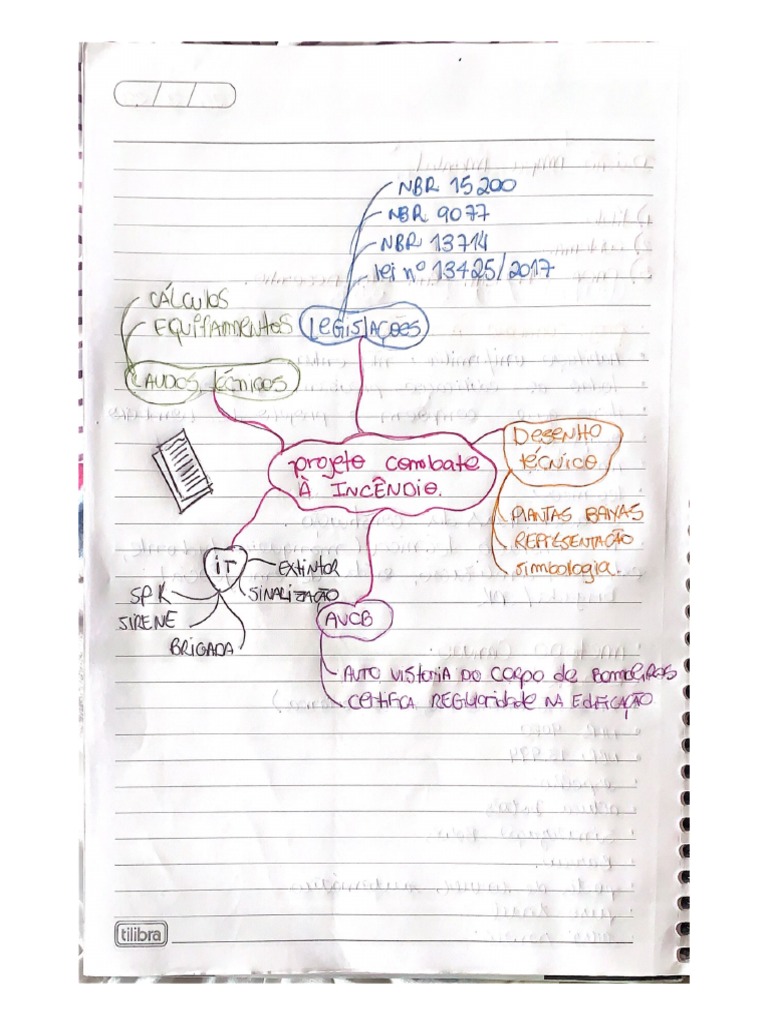 NBR 15200
NBR 9077
NBR 13714
lei nº 13425/2017
LEGISLAÇÕES
CÁLCULOS
EQUIPAMENTOS
LAUDOS TÉCNICOS
DESENHO
TÉCNICO
PLANTAS BAIXAS
REPRESENTAÇÃO
simbologia.
projeto combate
À INCÊNDIO.
IT
EXTINTOR
SINALIZAÇÃO
SPK
SIRENE
BRIGADA
AVCB
AUTO VISTORIA DO CORPO de BOMBEIROS
CERTIFICA REGULARIDADE NA EDIFICAÇÃO
tilibra